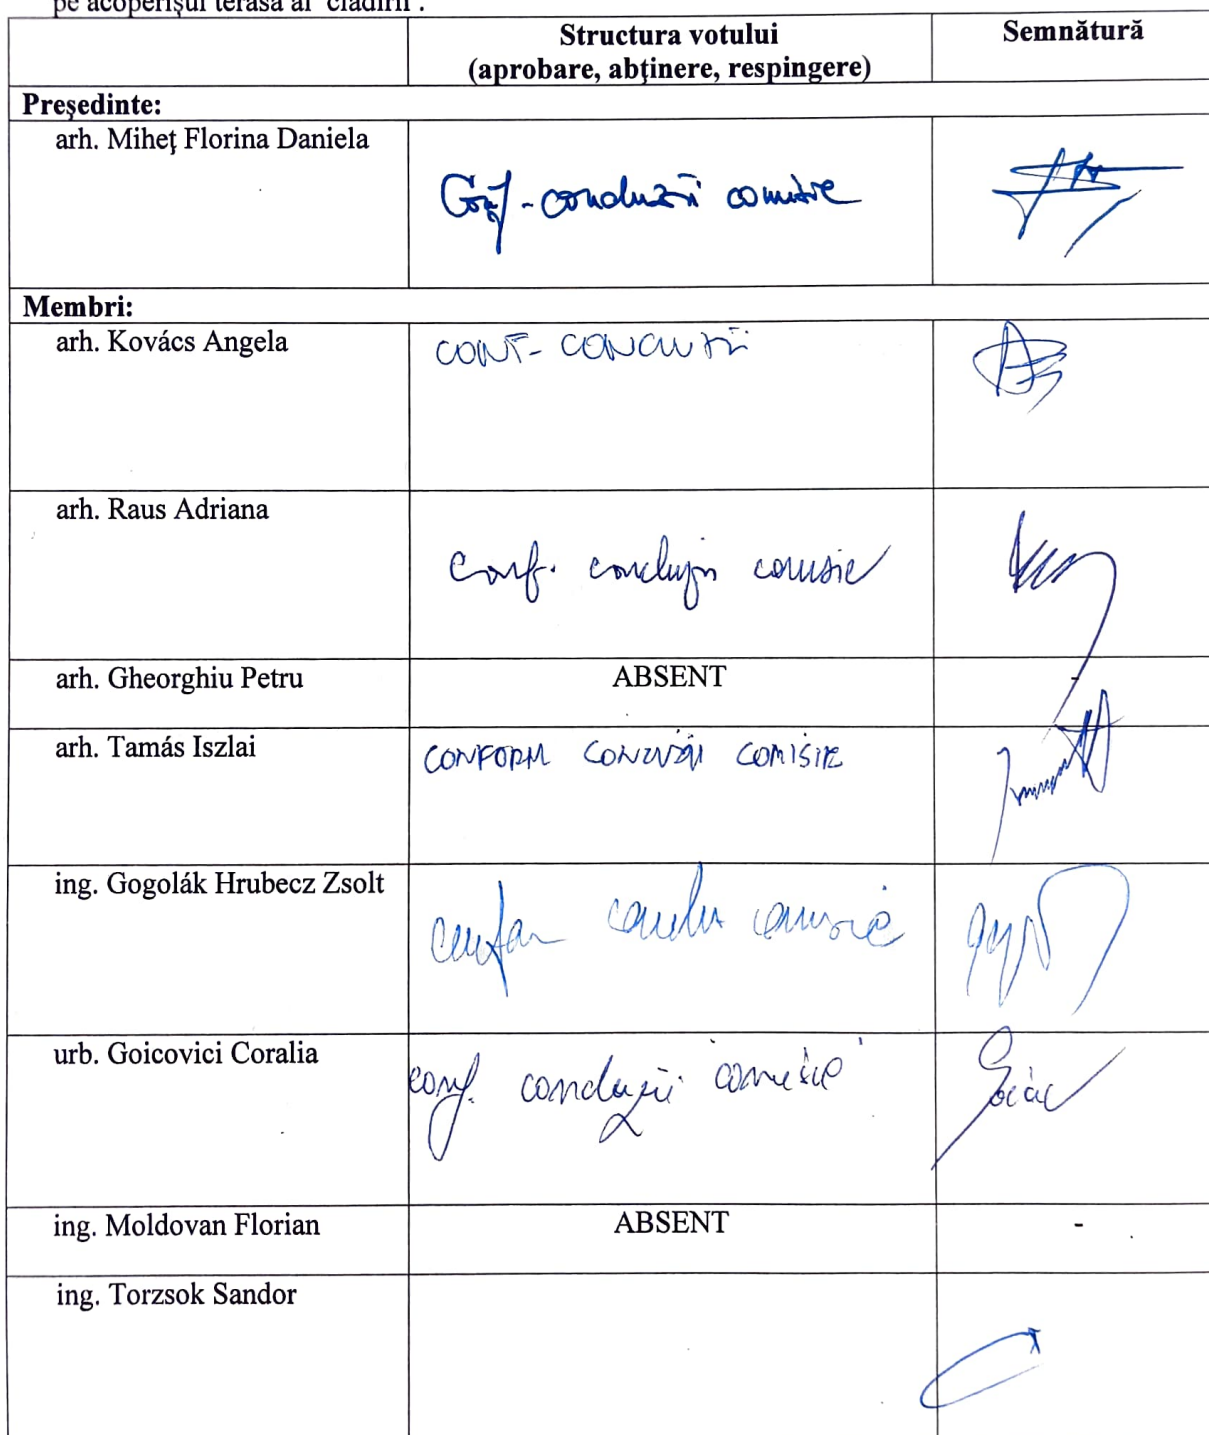 pe acoperișul terasă al clădirii .
Structura votului
(aprobare, abținere, respingere)
Semnătură
Președinte:
arh. Miheț Florina Daniela
Conf - concluzii comisie
Membri:
arh. Kovács Angela
CONF- CONCLUZII
arh. Raus Adriana
conf. concluzii comisie
arh. Gheorghiu Petru
ABSENT
-
arh. Tamás Iszlai
CONFORM CONCLUZII COMISIE
ing. Gogolák Hrubecz Zsolt
comisie
urb. Goicovici Coralia
conf. concluzii comisie
ing. Moldovan Florian
ABSENT
-
ing. Torzsok Sandor